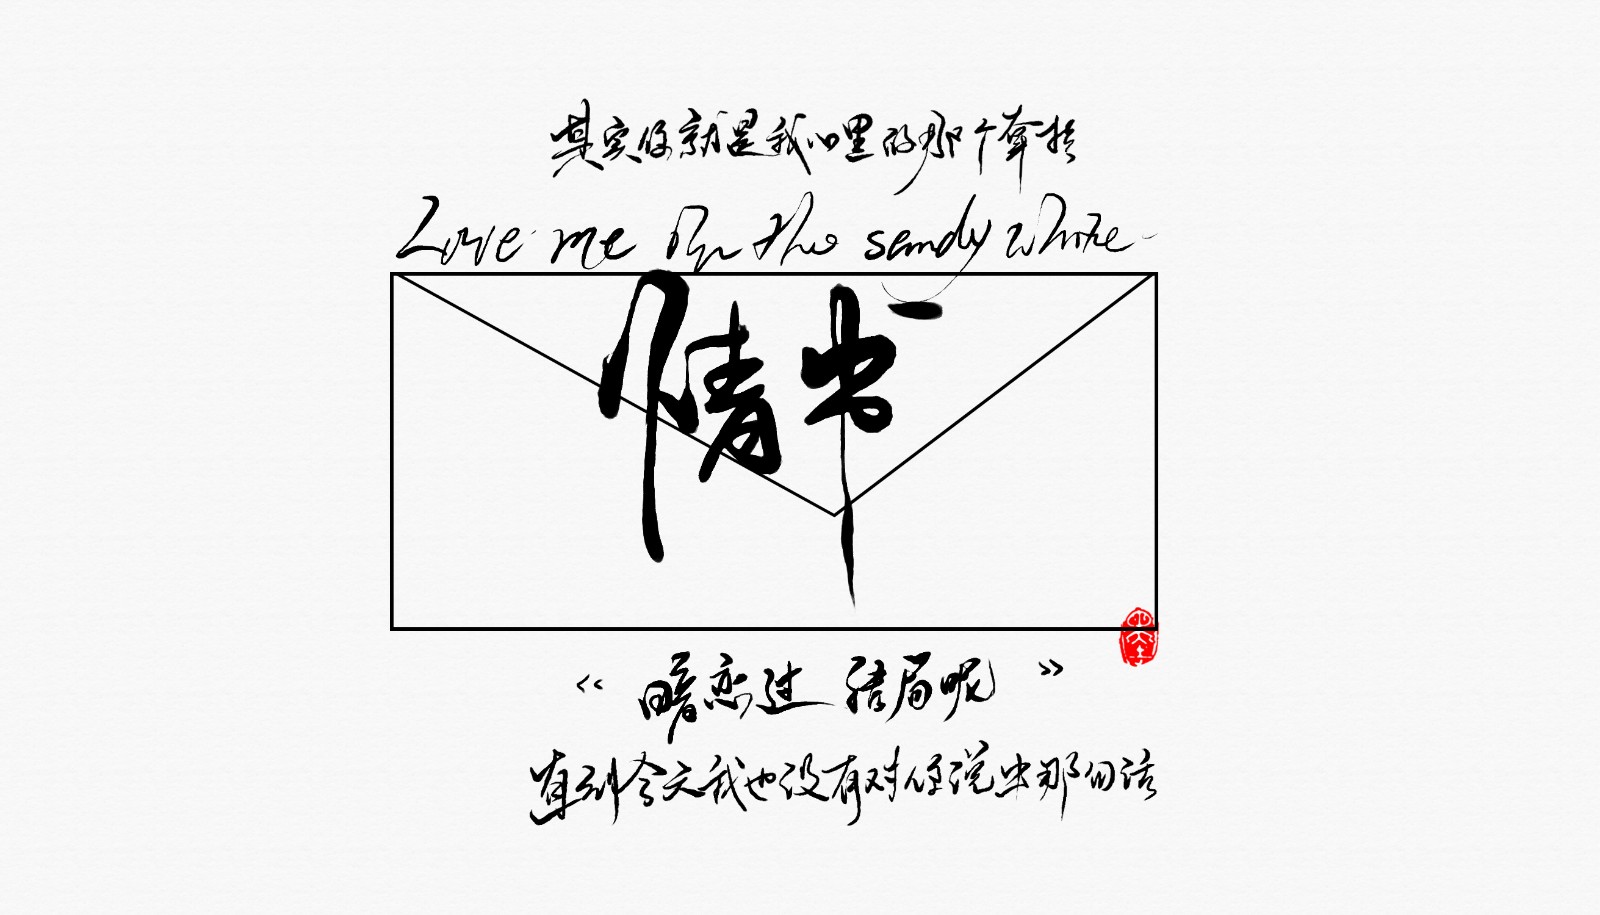 其实你就是我心里的那个牵挂
Love me in the sandy whote
情书
《 暗恋过 结局呢 》
直到今天我也没有对你说出那句话